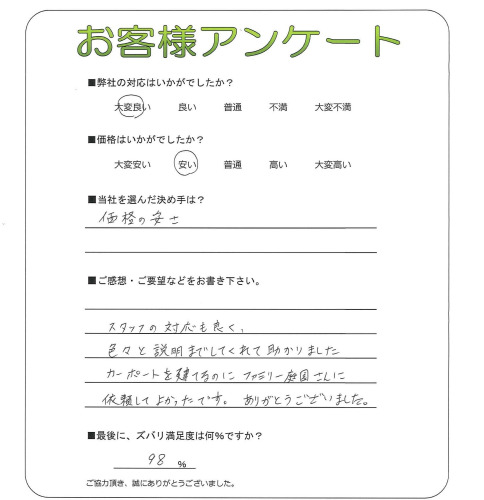 お客様アンケート
■弊社の対応はいかがでしたか？
大変良い 良い 普通 不満 大変不満
■価格はいかがでしたか？
大変安い 安い 普通 高い 大変高い
■当社を選んだ決め手は？
価格の安さ
■ご感想・ご要望などをお書き下さい。
スタッフの対応も良く、
色々と説明までしてくれて助かりました
カーポートを建てるのにファミリー庭園さんに
依頼してよかったです。ありがとうございました。
■最後に、ズバリ満足度は何%ですか？
98 %
ご協力頂き、誠にありがとうございました。